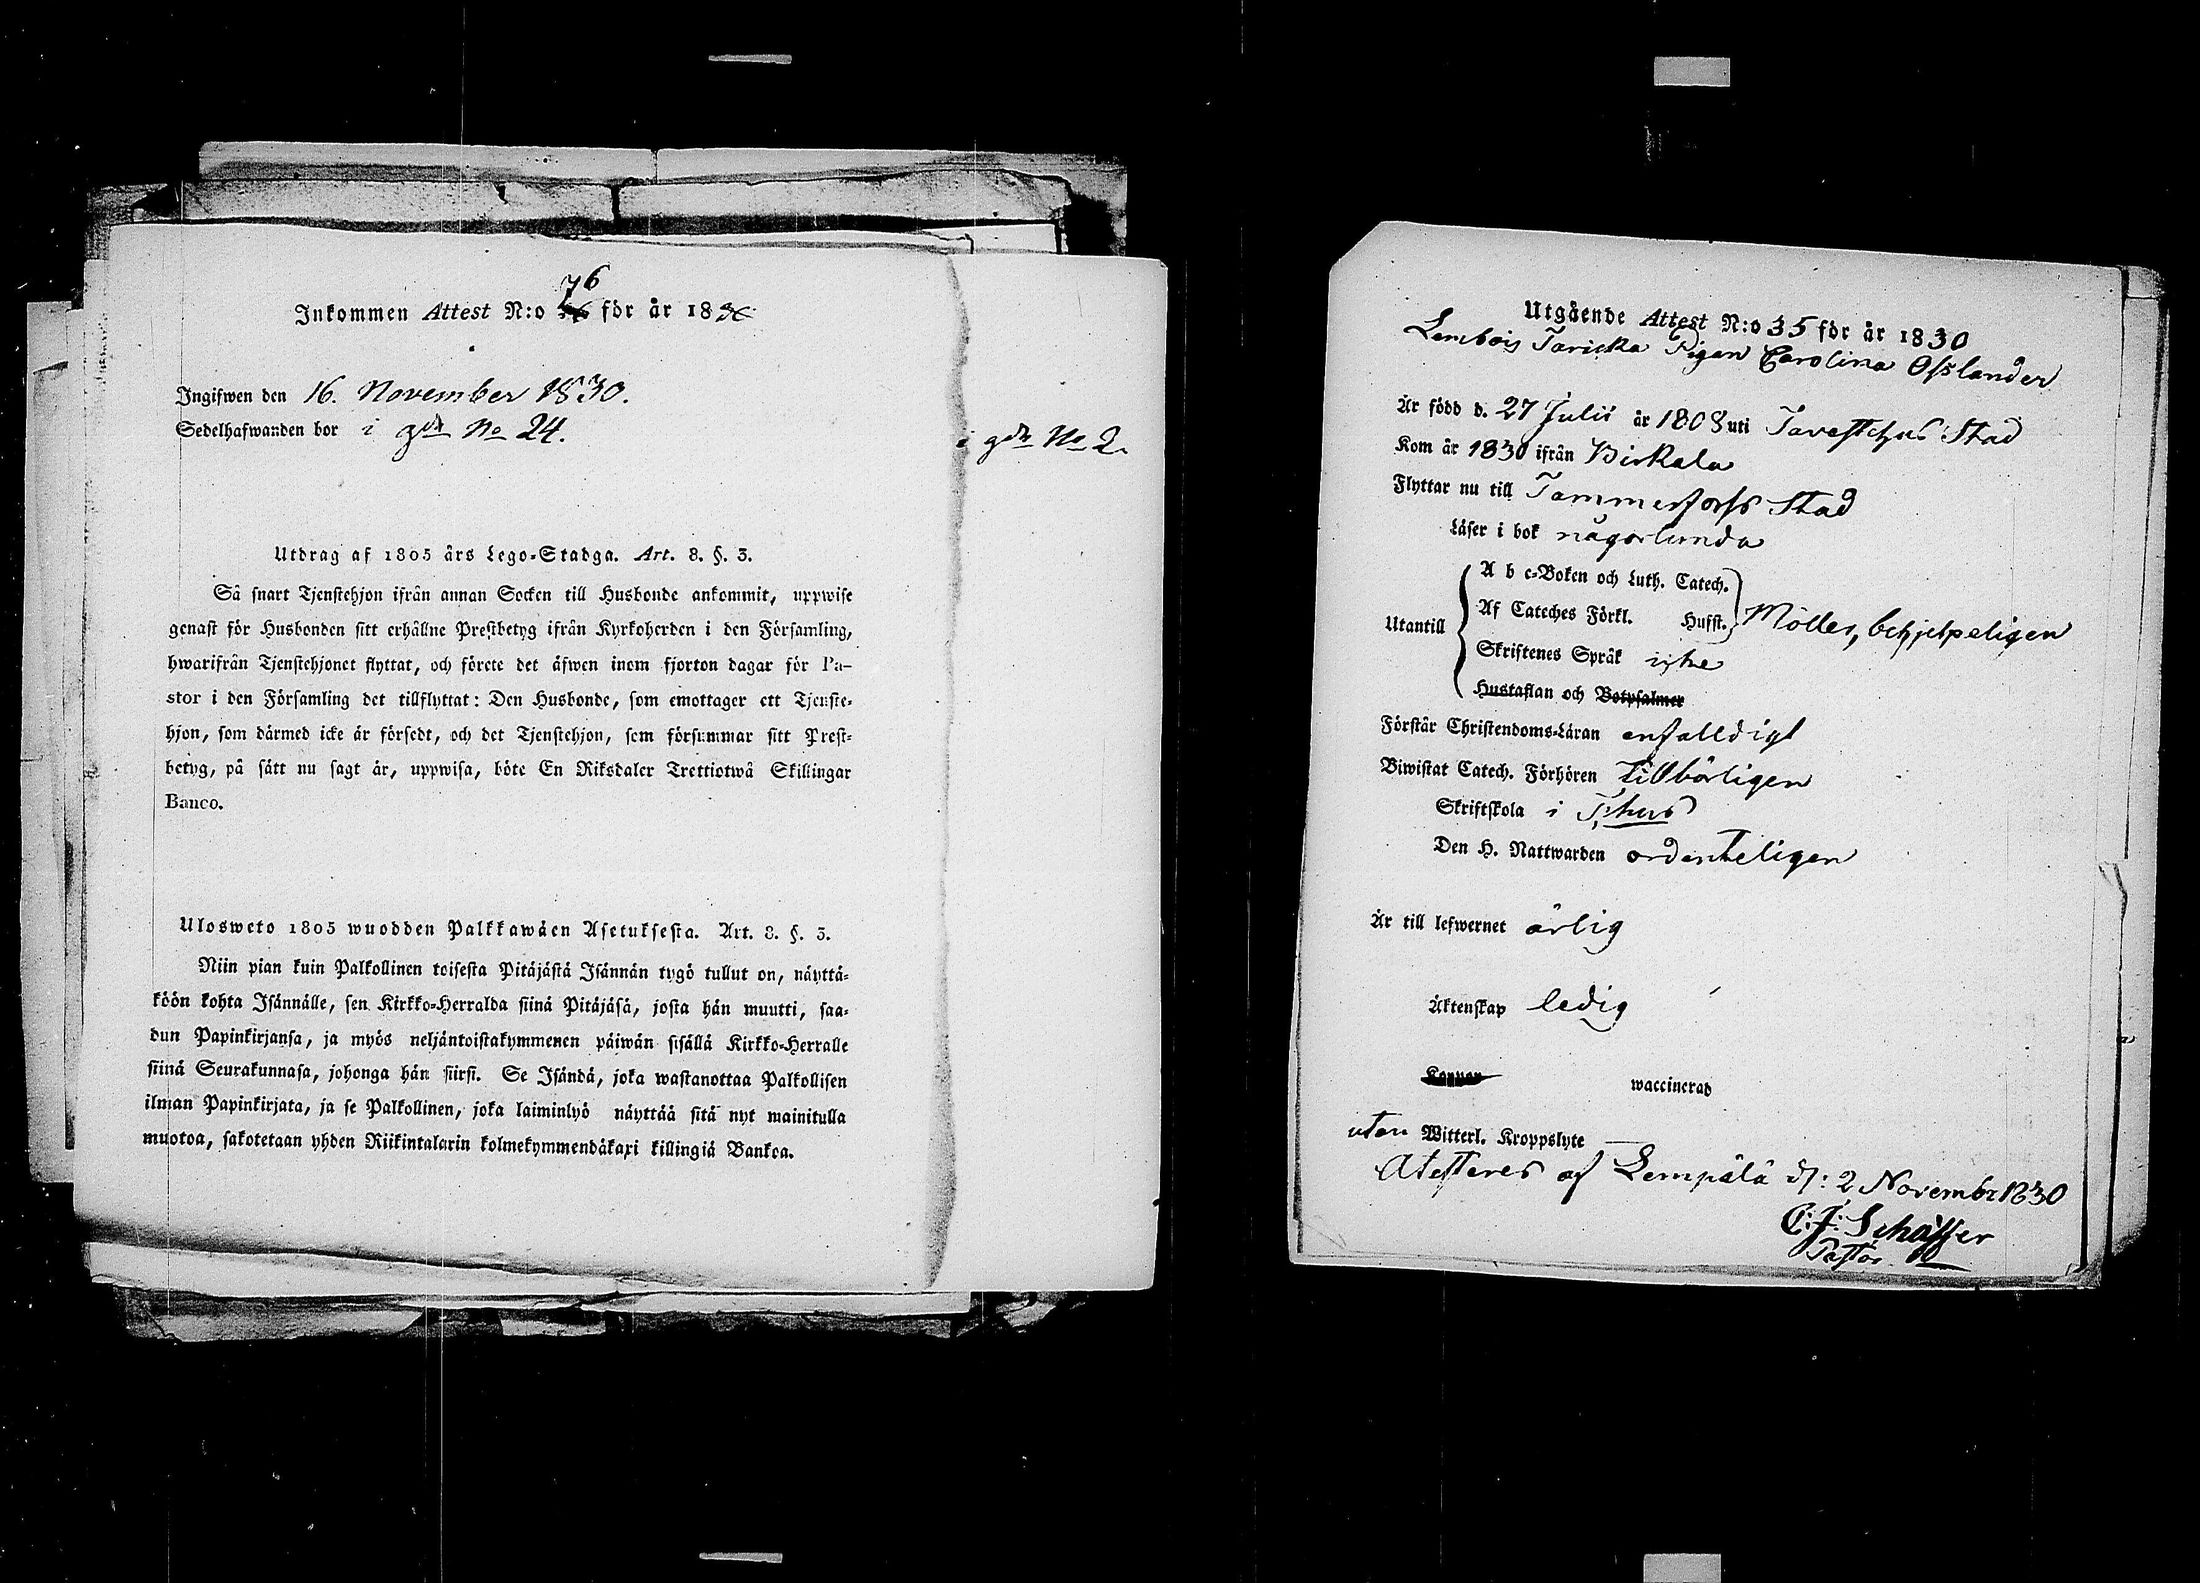 76
Inkommen Attest N:o 26 för år 1830
Ingifwen den 16. November 1830.
Sedelhafwanden bor i gdn No 24.
i gdn No 2.
Utdrag af 1805 års Lego-Stadga. Art. 8. §. 3.
Så snart Tjenstehjon ifrån annan Socken till Husbonde ankommit, uppwise
genast för Husbonden sitt erhållne Prestbetyg ifrån Kyrkoherden i den Församling,
hwarifrån Tjenstehjonet flyttat, och förete det äfwen inom fjorton dagar för Pa-
stor i den Församling det tillflyttat: Den Husbonde, som emottager ett Tjenste-
hjon, som därmed icke är försedt, och det Tjenstehjon, som försummar sitt Prest-
betyg, på sätt nu sagt är, uppwisa, böte En Riksdaler Trettiotwå Skillingar
Banco.
Ulosweto 1805 wuodden Palkkawäen Asetuksesta. Art. 8. §. 3.
Niin pian kuin Palkollinen toisesta Pitäjästä Isännän tygö tullut on, näyttä-
köön kohta Isännälle, sen Kirkko-Herralda siinä Pitäjäsä, josta hän muutti, saa-
dun Papinkirjansa, ja myös neljäntoistakymmenen päiwän sisällä Kirkko-Herralle
siinä Seurakunnasa, johonga hän siirsi. Se Isändä, joka wastanottaa Palkollisen
ilman Papinkirjata, ja se Palkollinen, joka laiminlyö näyttää sitä nyt mainitulla
muotoa, sakotetaan yhden Riikintalarin kolmekymmendäkaxi killingiä Bankoa.
Utgående Attest N:o 35 för år 1830
Lembois Taricka Pigan Carolina Osslander
Är född d. 27 Julii år 1808 uti Tavastehus Stad
Kom år 1830 ifrån Birkala
Flyttar nu till Tammerforss Stad
Läser i bok någorlunda
Utantill
A b c-Boken och Luth. Catech.
Af Cateches Förkl. Hufst. Möller, behjelpeligen
Skriftenes Språk icke
Hustaflan och Botpsalmer
Förstår Christendoms-Läran enfalldigt
Biwistat Catech. Förhören tillbörligen
Skriftskola i T:hus
Den H. Nattwarden ordenteligen
Är till lefwernet ärlig
Äktenskap ledig
Koppor waccinerad
utan Witterl. Kroppslyte
Atesteres af Lempälä d: 2 Novembr 1830
C: J: Schäffer
Pastor.